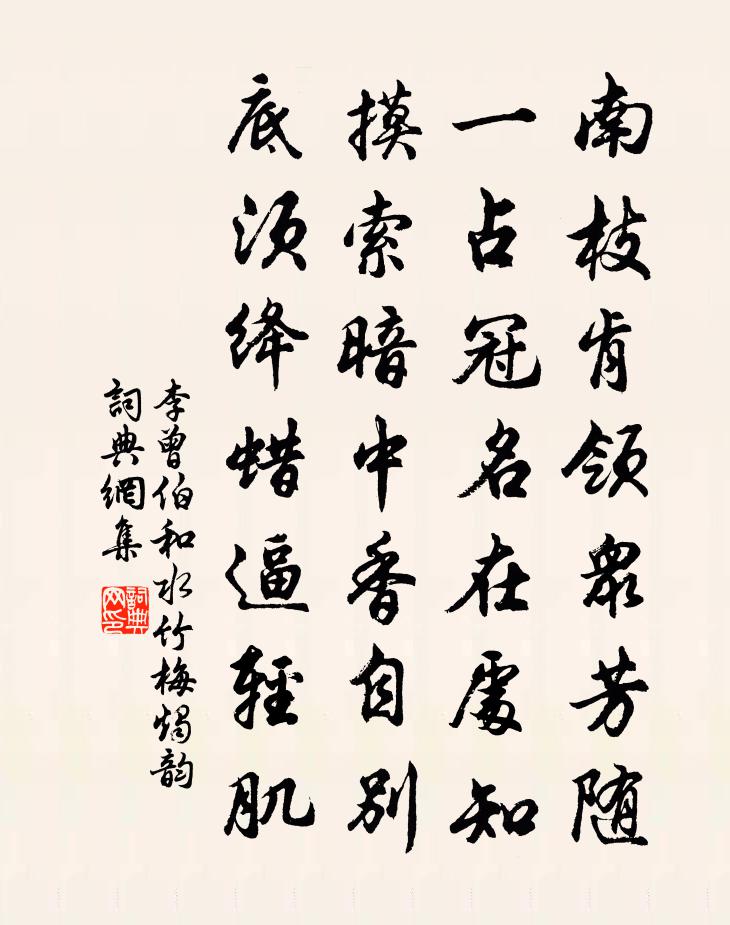 南枝肯领众芳随
一占冠名在處知
摸索暗中香自别
底须绛蜡逼輕肌
李曾伯和水竹梅烛韵
詞典網集
詞典网印